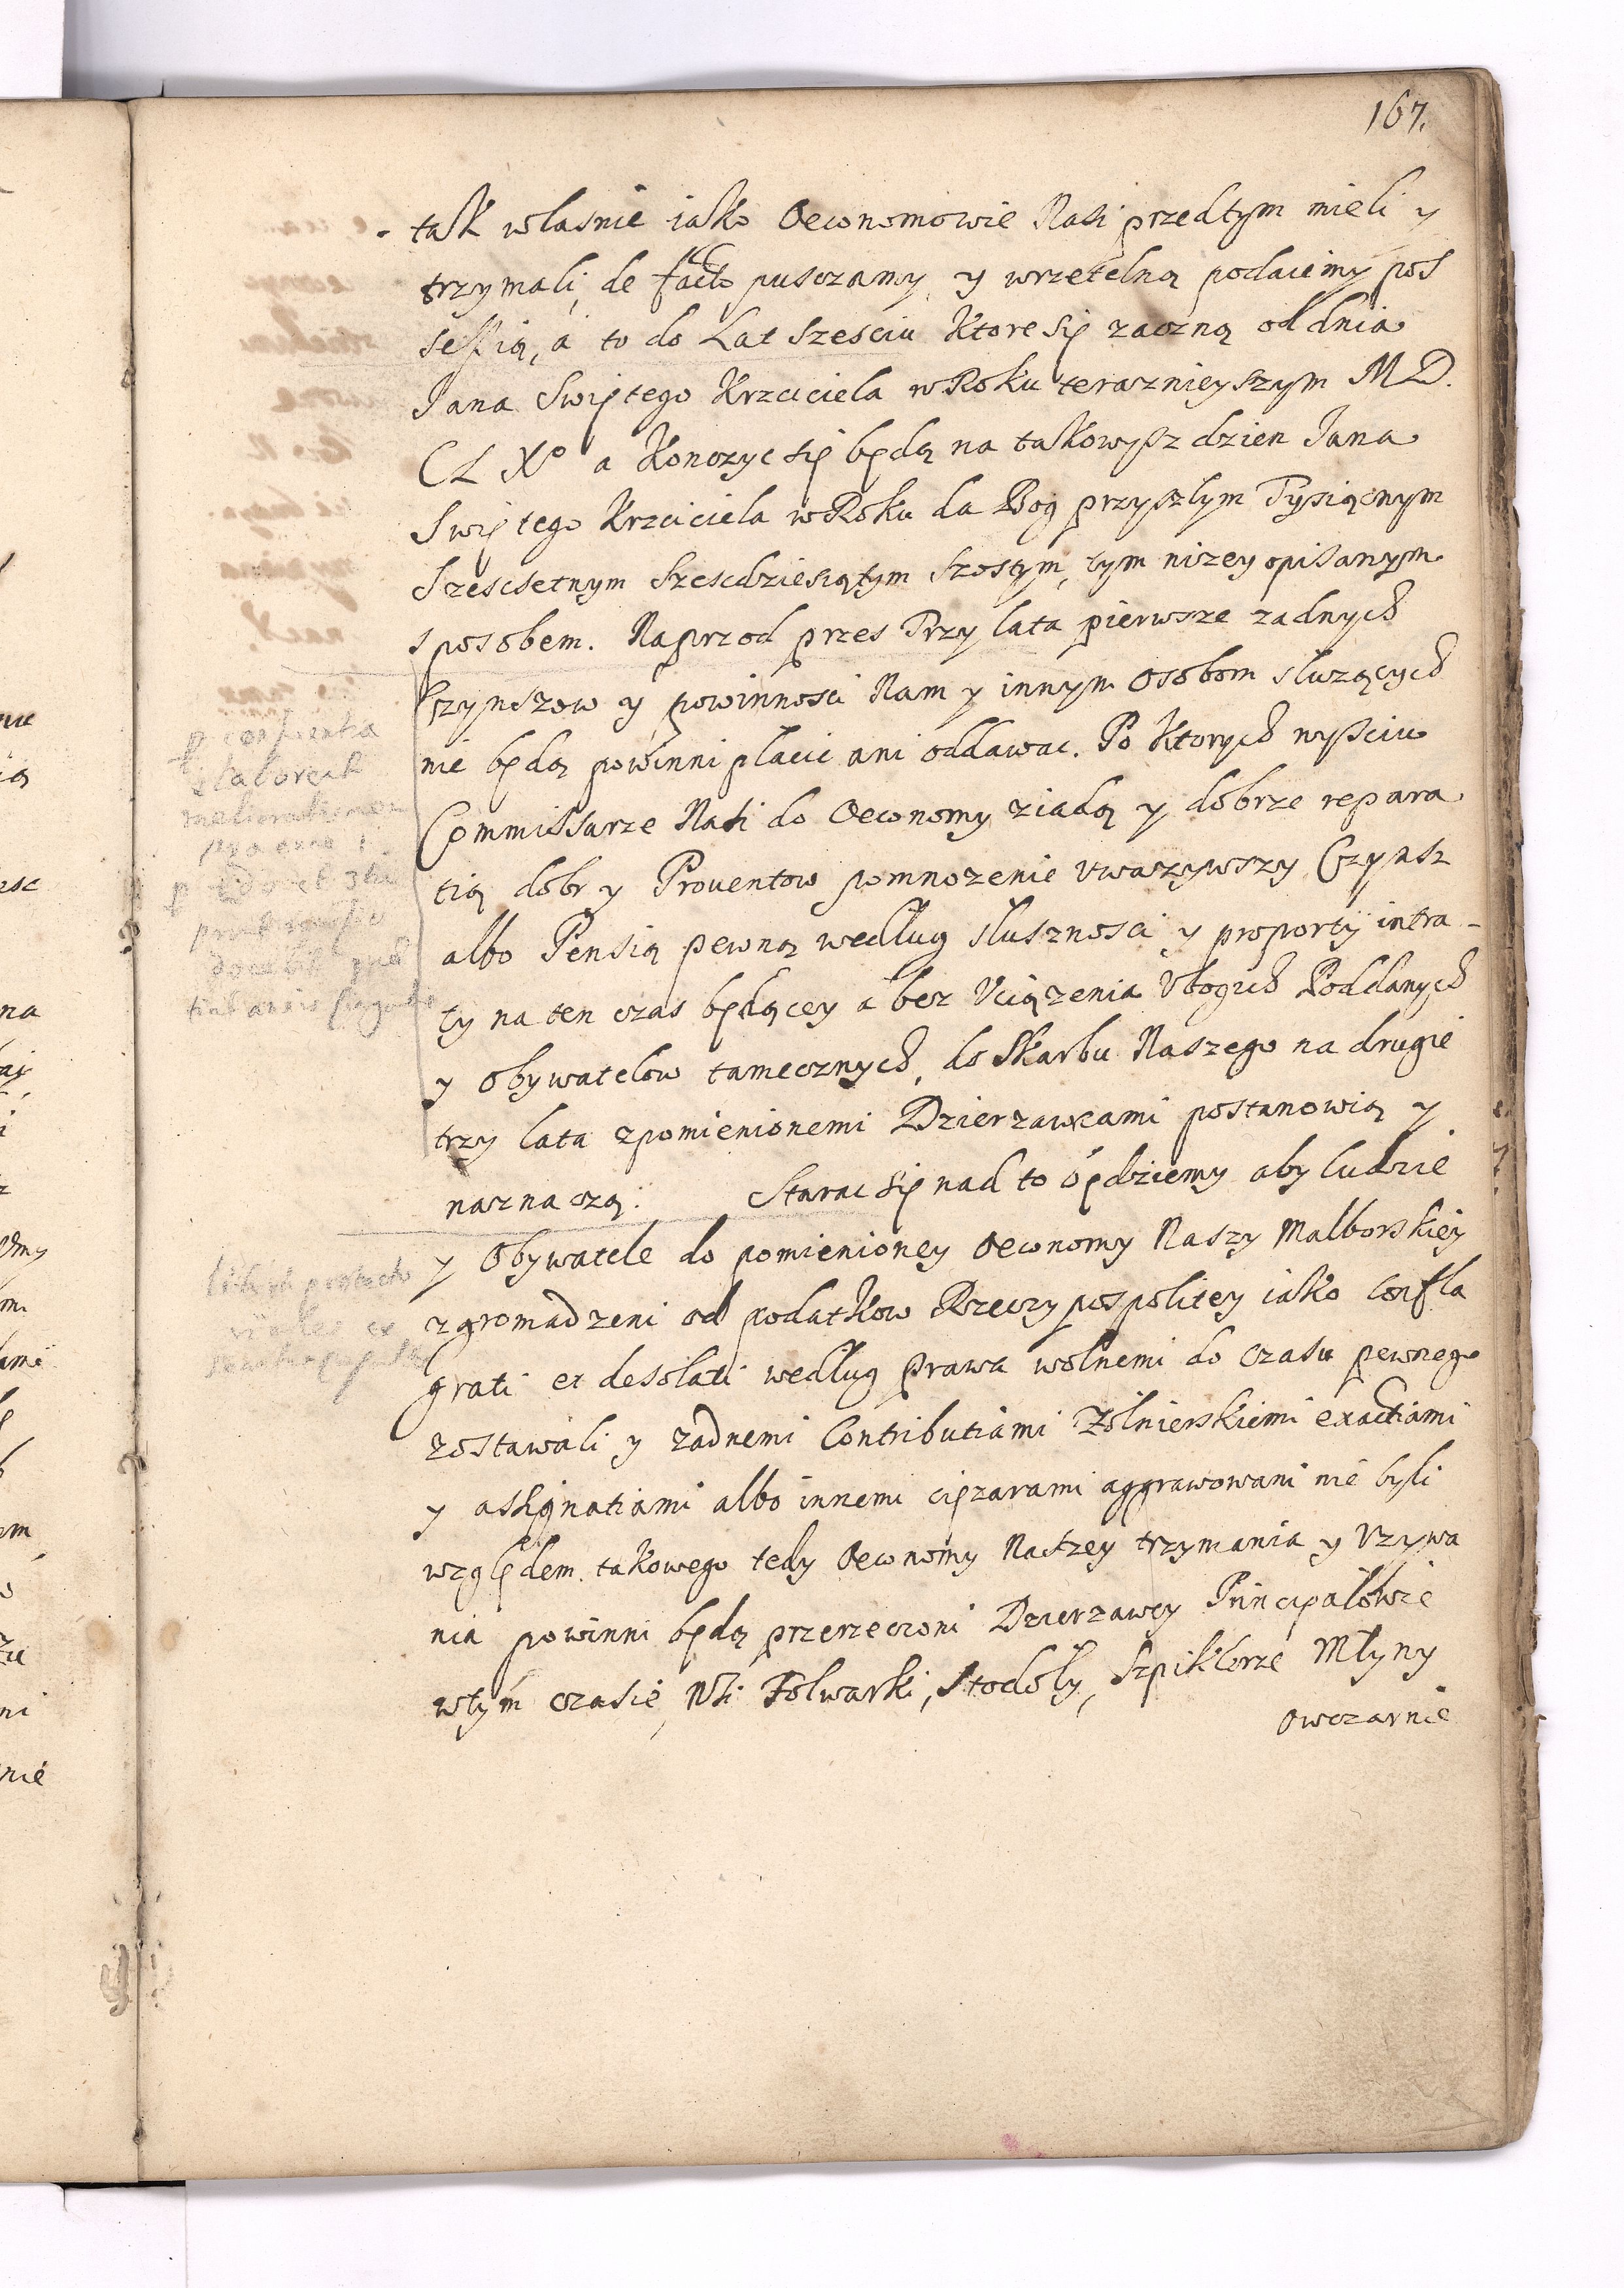 167.
tak wlasnie iako Oeconomowie Nasi przedtym mieli y
trzymali, de facto pusczamy y wrzetelną podaiemy pos
sessią, a to do Lat szesciu ktore się zaczną od dnia
Jana Swiętego Krzciciela w Roku teraznieyszym M D.
CLX° a konczyc się będą na takowysz dzien Jana
Swiętego Krzciciela w Roku da Bog przyszlym Tysiącnym
Szescsetnym Szescdziesiątym Szostym, tym nizey opisanym
sposobem. Naprzod przes Trzy lata pierwsze zadnych
Czynszow y powinnosci Nam y innym Osobom sluzących
nie będą powinni placic ani oddawac. Po ktorych wysciu
Commissarze Nasi do Oeconomy ziadą y dobrze repara
tią dobr y Prouentow pomnozenie vwazywszy Czynsz
albo Pensią pewną według slusznosci y proporty intra-
ty na ten czas będącey a bez Vciązenia Vbogich Poddanych
y Obywatelow tamecznych, do Skarbu Naszego na drugie
trzy lata zpomienionemi Dzierzawcami postanowią y
naznaczą: Starac się nad to będziemy aby ludzie
y Obywatele do pomienioney Oeconomy Naszy Malborskiey
zgromadzeni od podatkow Rzeczypospolitey iako Confla
grati et desolati według prawa wolnemi do czasu pewnego
zostawali y zadnemi Contributiami Zolnierskiemi exactiami
y assignatiami albo innemi cięzarami aggrawowani nie byli
względem takowego tedy Oeconomy Naszey trzymania y Vzywa
nia powinni będą przerzeczoni Dzierzawcy Principalowie
wtym czasie, Wsi Folwarki, Stodoly, Szpiklerze Młyny
owczarnie